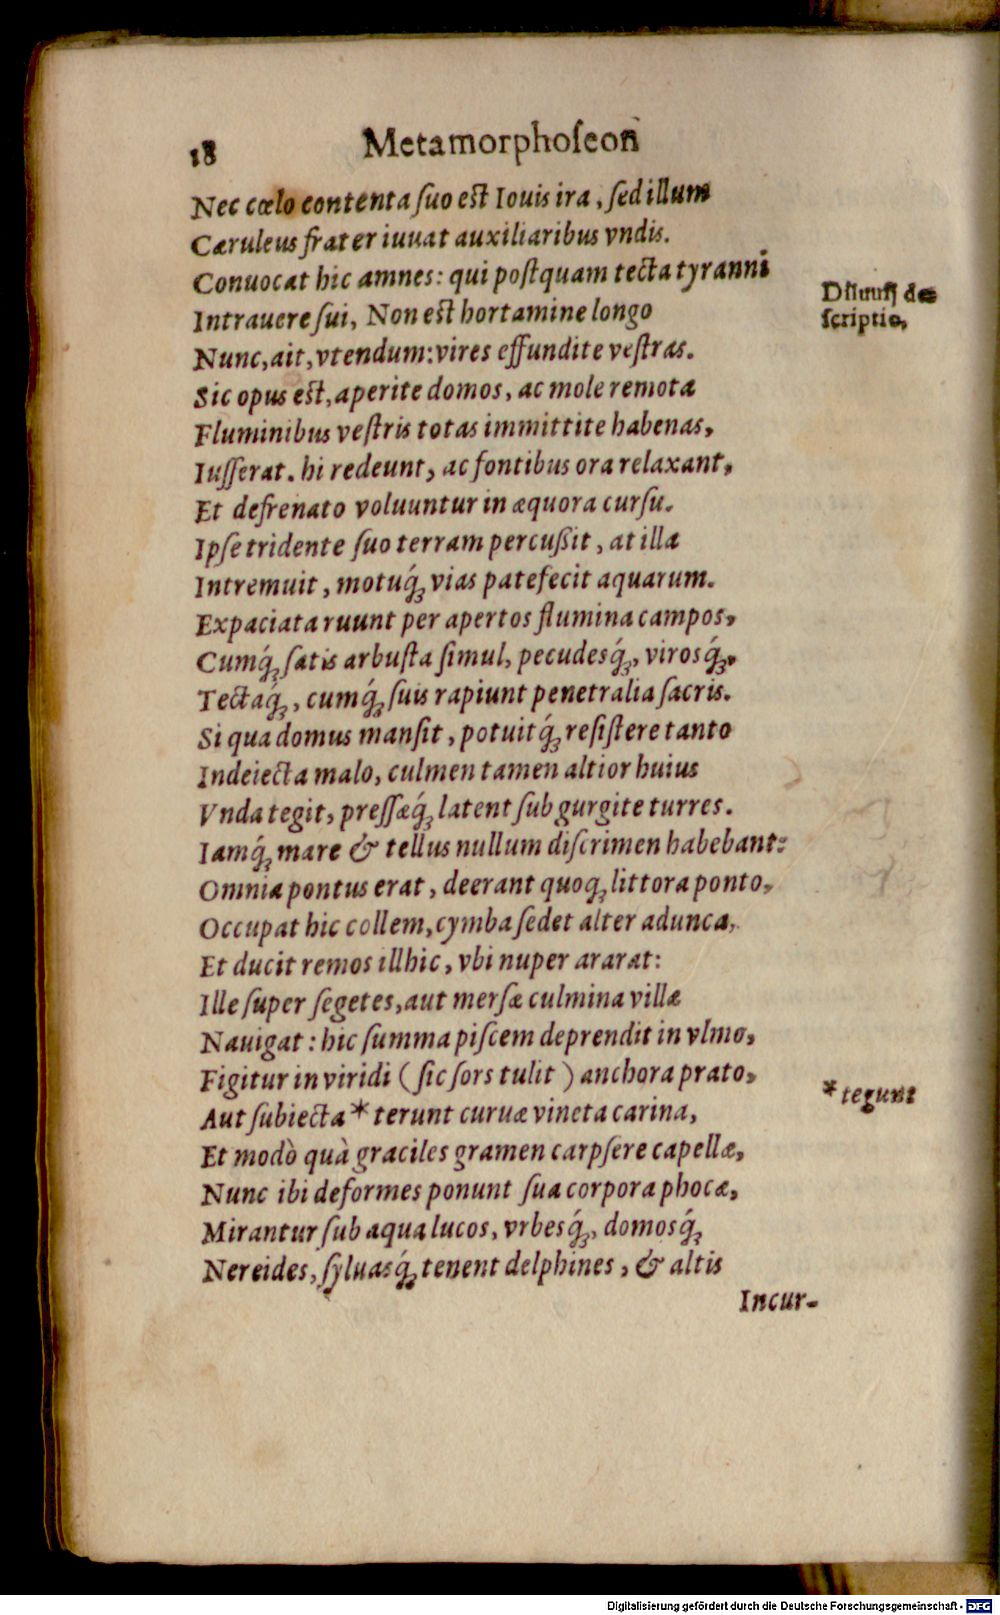 18 Metamorphoſeon
Nec cœlo contenta ſuo eſt Iouis ira, ſed illum
Cæruleus frater iuuat auxiliaribus vndis.
Conuocat hic amnes: qui poſtquam tecta tyranni
Intrauere ſui, Non eſt hortamine longo
Nunc, ait, vtendum: vires effundite veſtras.
Sic opus eſt, aperite domos, ac mole remota
Fluminibus veſtris totas immittite habenas,
Iuſſerat. hi redeunt, ac fontibus ora relaxant,
Et defrenato voluuntur in æquora curſu.
Ipſe tridente ſuo terram percußit, at illa
Intremuit, motuq́ꝫ vias patefecit aquarum.
Expaciata ruunt per apertos flumina campos,
Cumq́ꝫ ſatis arbuſta ſimul, pecudesq́ꝫ, virosq́ꝫ,
Tectaq́ꝫ, cumq́ꝫ ſuis rapiunt penetralia ſacris.
Si qua domus manſit, potuitq́ꝫ reſiſtere tanto
Indeiecta malo, culmen tamen altior huius
Vnda tegit, preſſæq́ꝫ latent ſub gurgite turres.
Iamq́ꝫ mare & tellus nullum diſcrimen habebant:
Omnia pontus erat, deerant quoqꝫ littora ponto,
Occupat hic collem, cymba ſedet alter adunca,
Et ducit remos illhic, vbi nuper ararat:
Ille ſuper ſegetes, aut merſæ culmina villæ
Nauigat: hic ſumma piſcem deprendit in vlmo,
Figitur in viridi (ſic ſors tulit) anchora prato,
Aut ſubiecta * terunt curuæ vineta carina,
Et modò quà graciles gramen carpſere capellæ,
Nunc ibi deformes ponunt ſua corpora phocæ,
Mirantur ſub aqua lucos, vrbesq́ꝫ, domosq́ꝫ
Nereides, ſyluasq́ꝫ tenent delphines, & altis
Incur-
Diluuij de
ſcriptio,
* tegunt
Digitalisierung gefördert durch die Deutsche Forschungsgemeinschaft - DFG